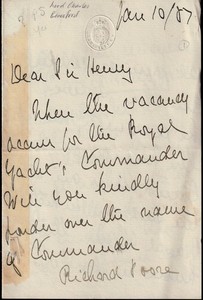 Lord Charles
Beresford
Jan 10/87
Dear Sir Henry
When the vacancy
occurs for the Royal
Yacht's Commander
Will you kindly
ponder over the name
of Commander
Richard Poore